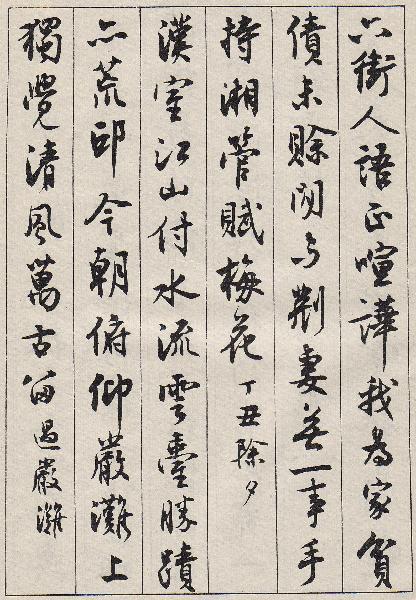 六街人語正喧譁我為家貧
債未賒閒与荊妻無一事手
持湘管賦梅花 丁丑除夕
漢室江山付水流雲臺勝蹟
亦荒邱今朝俯仰嚴灘上
獨覺清風萬古留 過嚴灘